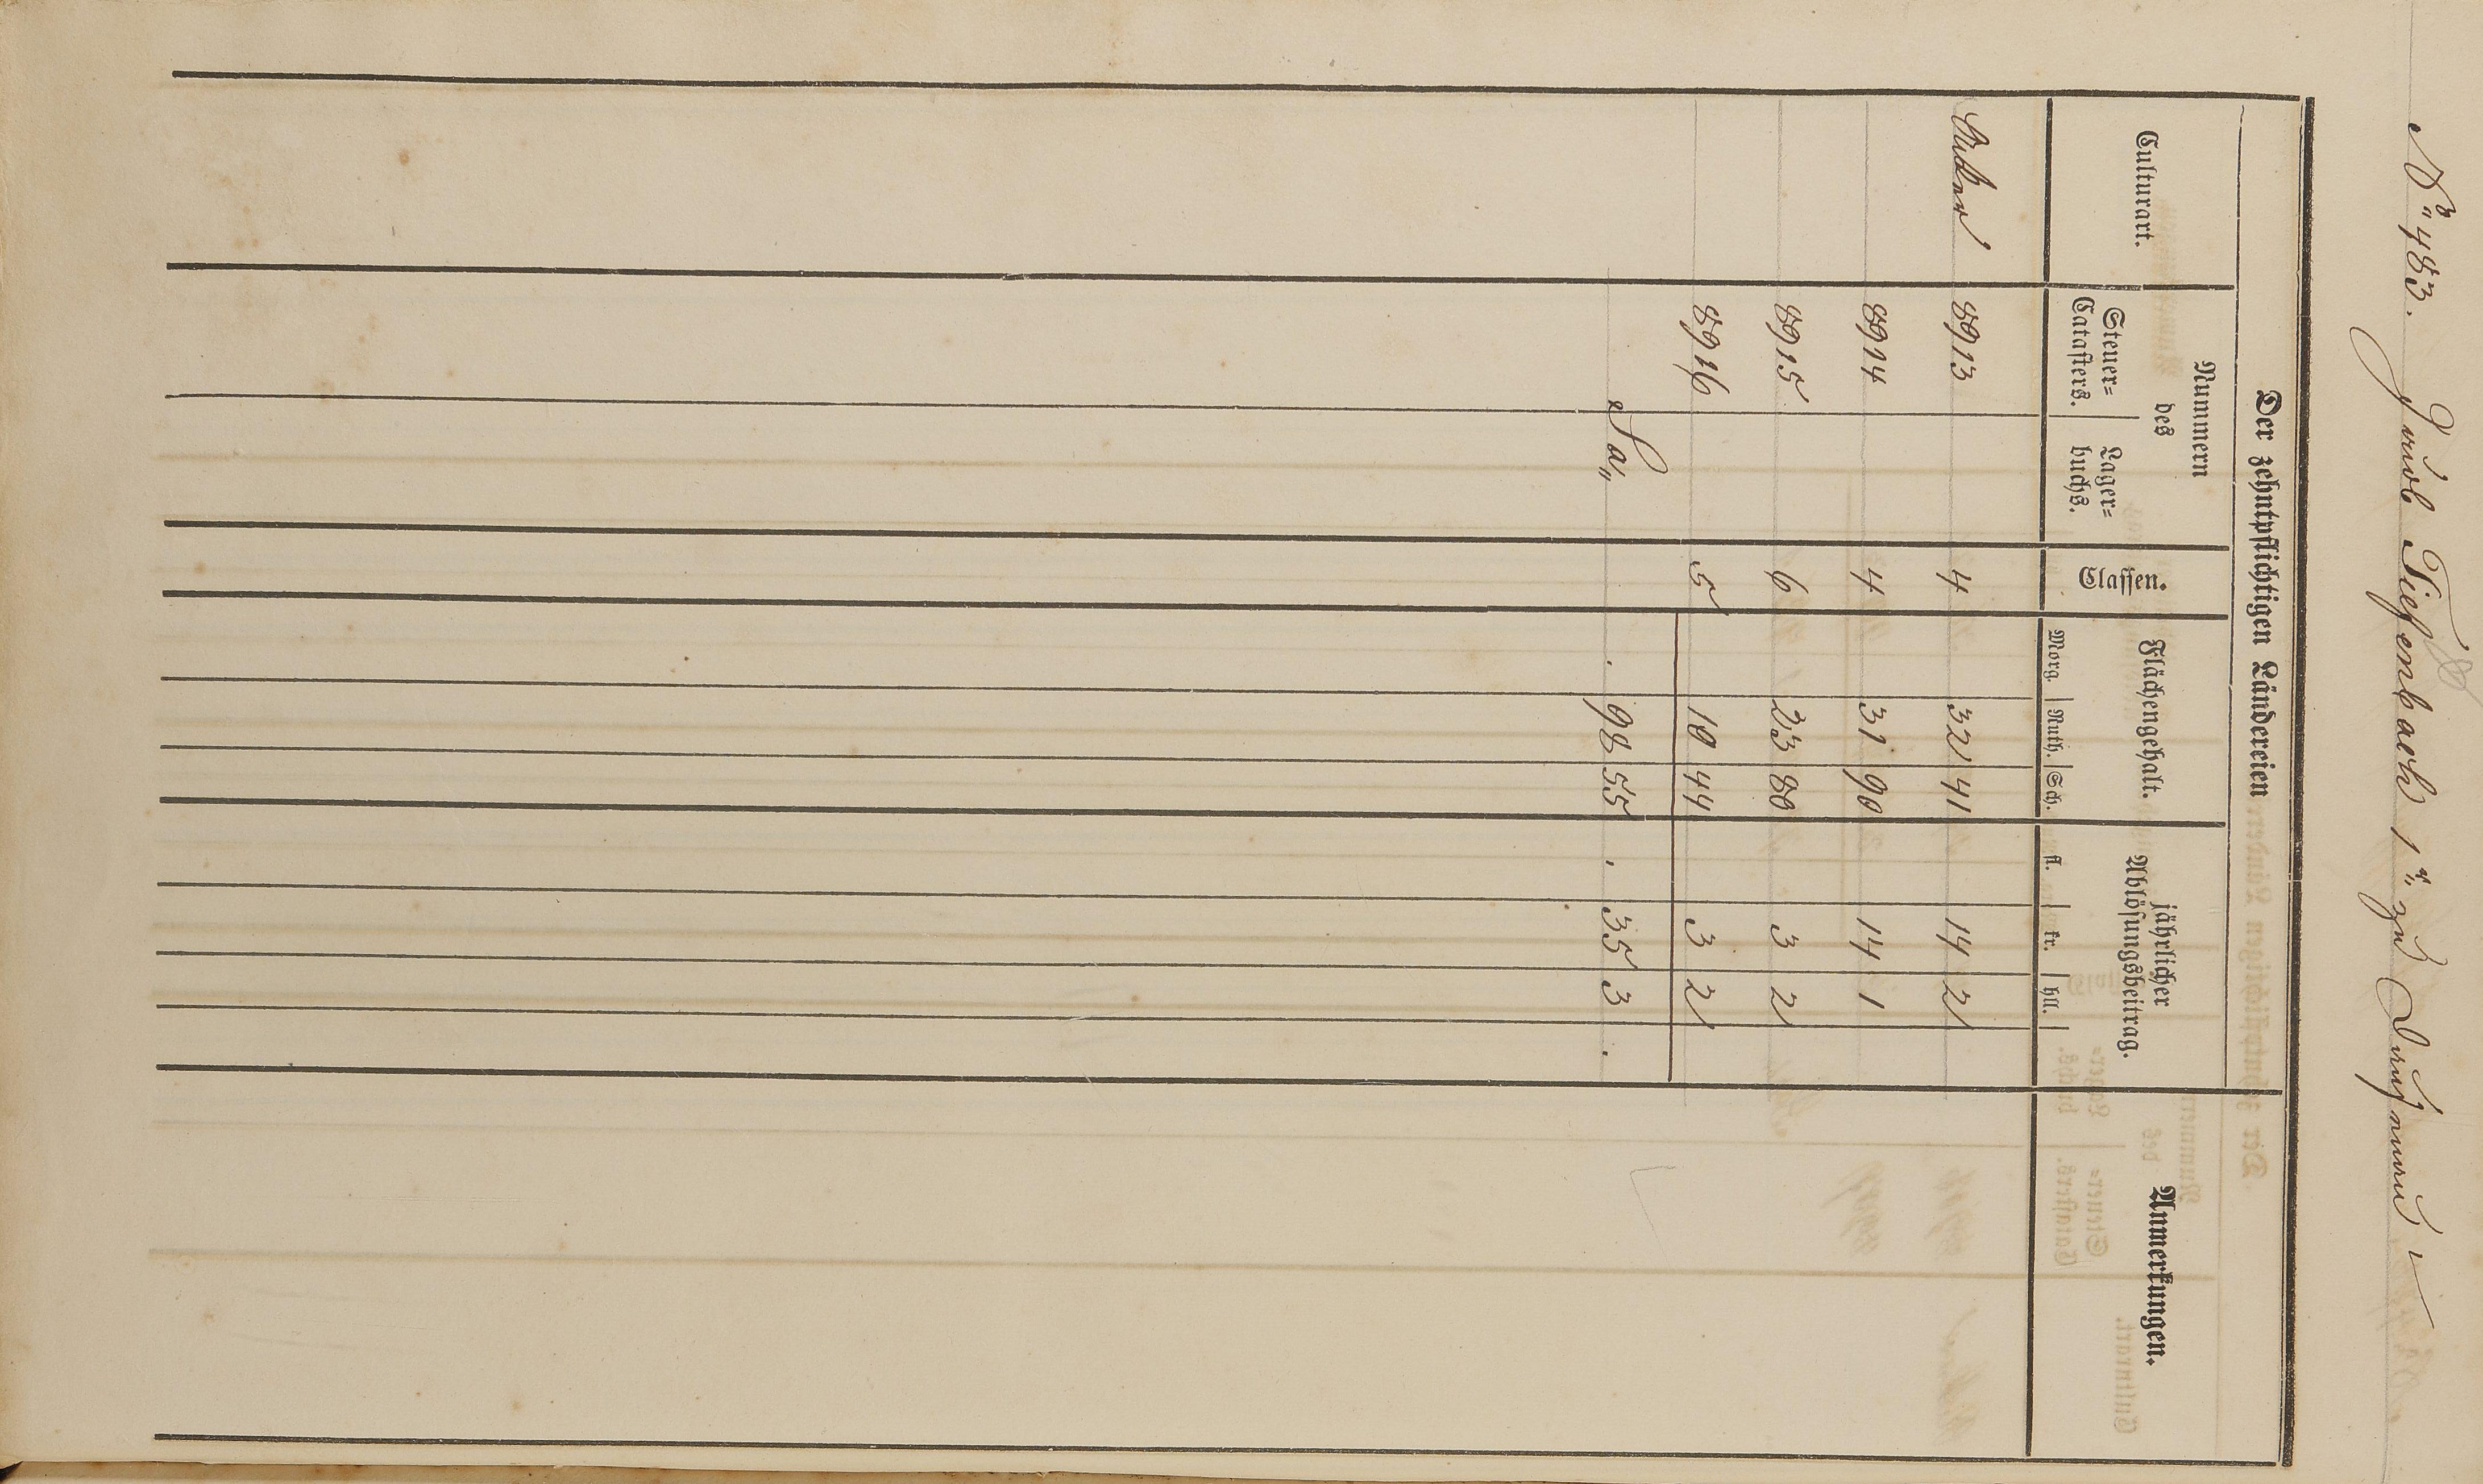 No 483. Jacob Tiefenbach 1r zu
Der zehntpflichtigen Ländereien
Culturart.
Nummern
des
Steuer=
Catasters.
Lager=
buchs.
Classen.
Flächengehalt.
Morg. Ruth. Sch.
jährlicher
Ablösungsbeitrag.
fl. kr. hll.
Anmerkungen.
Acker 8913 4 32 41 14 2
8914 4 31 90 14 1
8915 6 23 80 3 2
8916 5 10 44 3 2
Sa. . 98 55 . 35 3 .